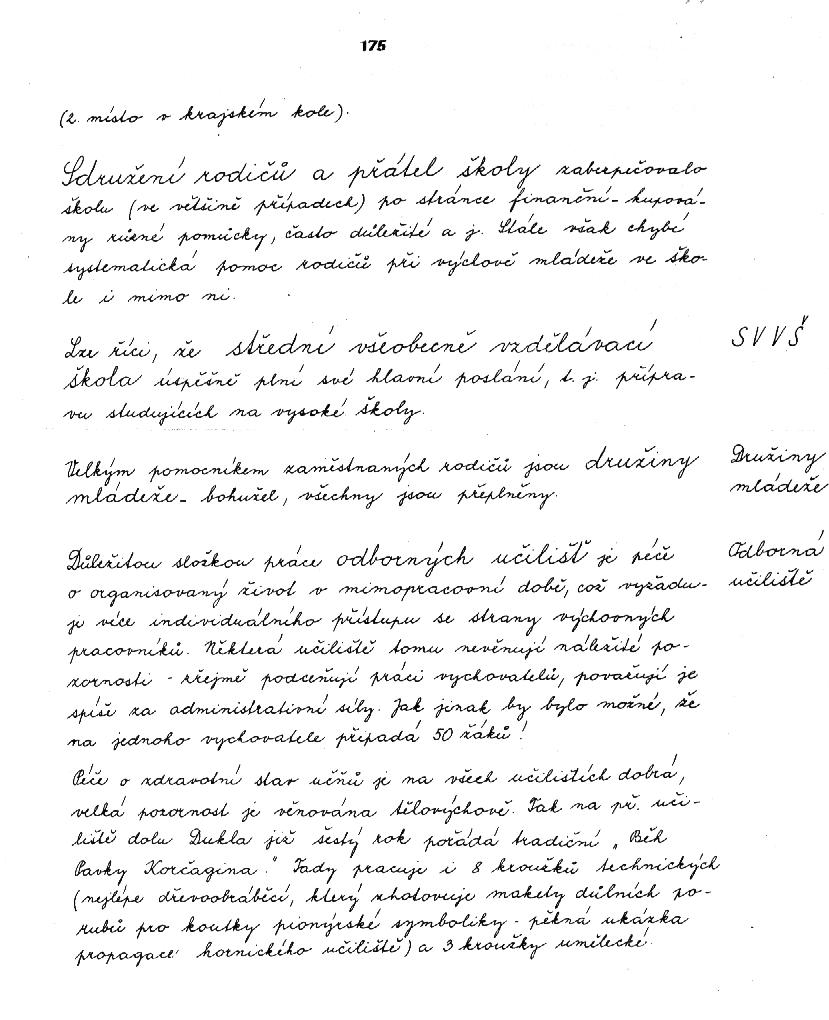 175
(2. místo v krajském kole).
Sdružení rodičů a přátel školy zabezpečovalo
školu (ve většině případech) po stránce finanční - kupová-
ny různé pomůcky, často důležité a j. Stále však chybí
systematická pomoc rodičů při výchově mládeže ve ško-
le i mimo ni.
Lze říci, že střední všeobecně vzdělávací
SVVŠ
škola úspěšně plní své hlavní poslání, t. j. přípra-
vu studujících na vysoké školy.
Velkým pomocníkem zaměstnaných rodičů jsou družiny
Družiny
mládeže - bohužel, všechny jsou přeplněny.
mládeže
Důležitou složkou práce odborných učilišť je péče
Odborná
o organisovaný život v mimopracovní době, což vyžadu-
učiliště
je více individuálního přístupu se strany výchovných
pracovníků. Některá učiliště tomu nevěnují náležité po-
zornosti - zřejmě podceňují práci vychovatelů, považují je
spíše za administrativní síly. Jak jinak by bylo možné, že
na jednoho vychovatele připadá 50 žáků!
Péče o zdravotní stav učňů je na všech učilištích dobrá,
velká pozornost je věnována tělovýchově. Tak na př. uči-
liště dolu Dukla již šestý rok pořádá tradiční „Běh
Pavky Korčagina." Tady pracuje i 8 kroužků technických
(nejlépe dřevoobráběcí, který zhotovuje makety důlních po-
rubů pro koutky pionýrské symboliky - pěkná ukázka
propagace hornického učiliště) a 3 kroužky umělecké.